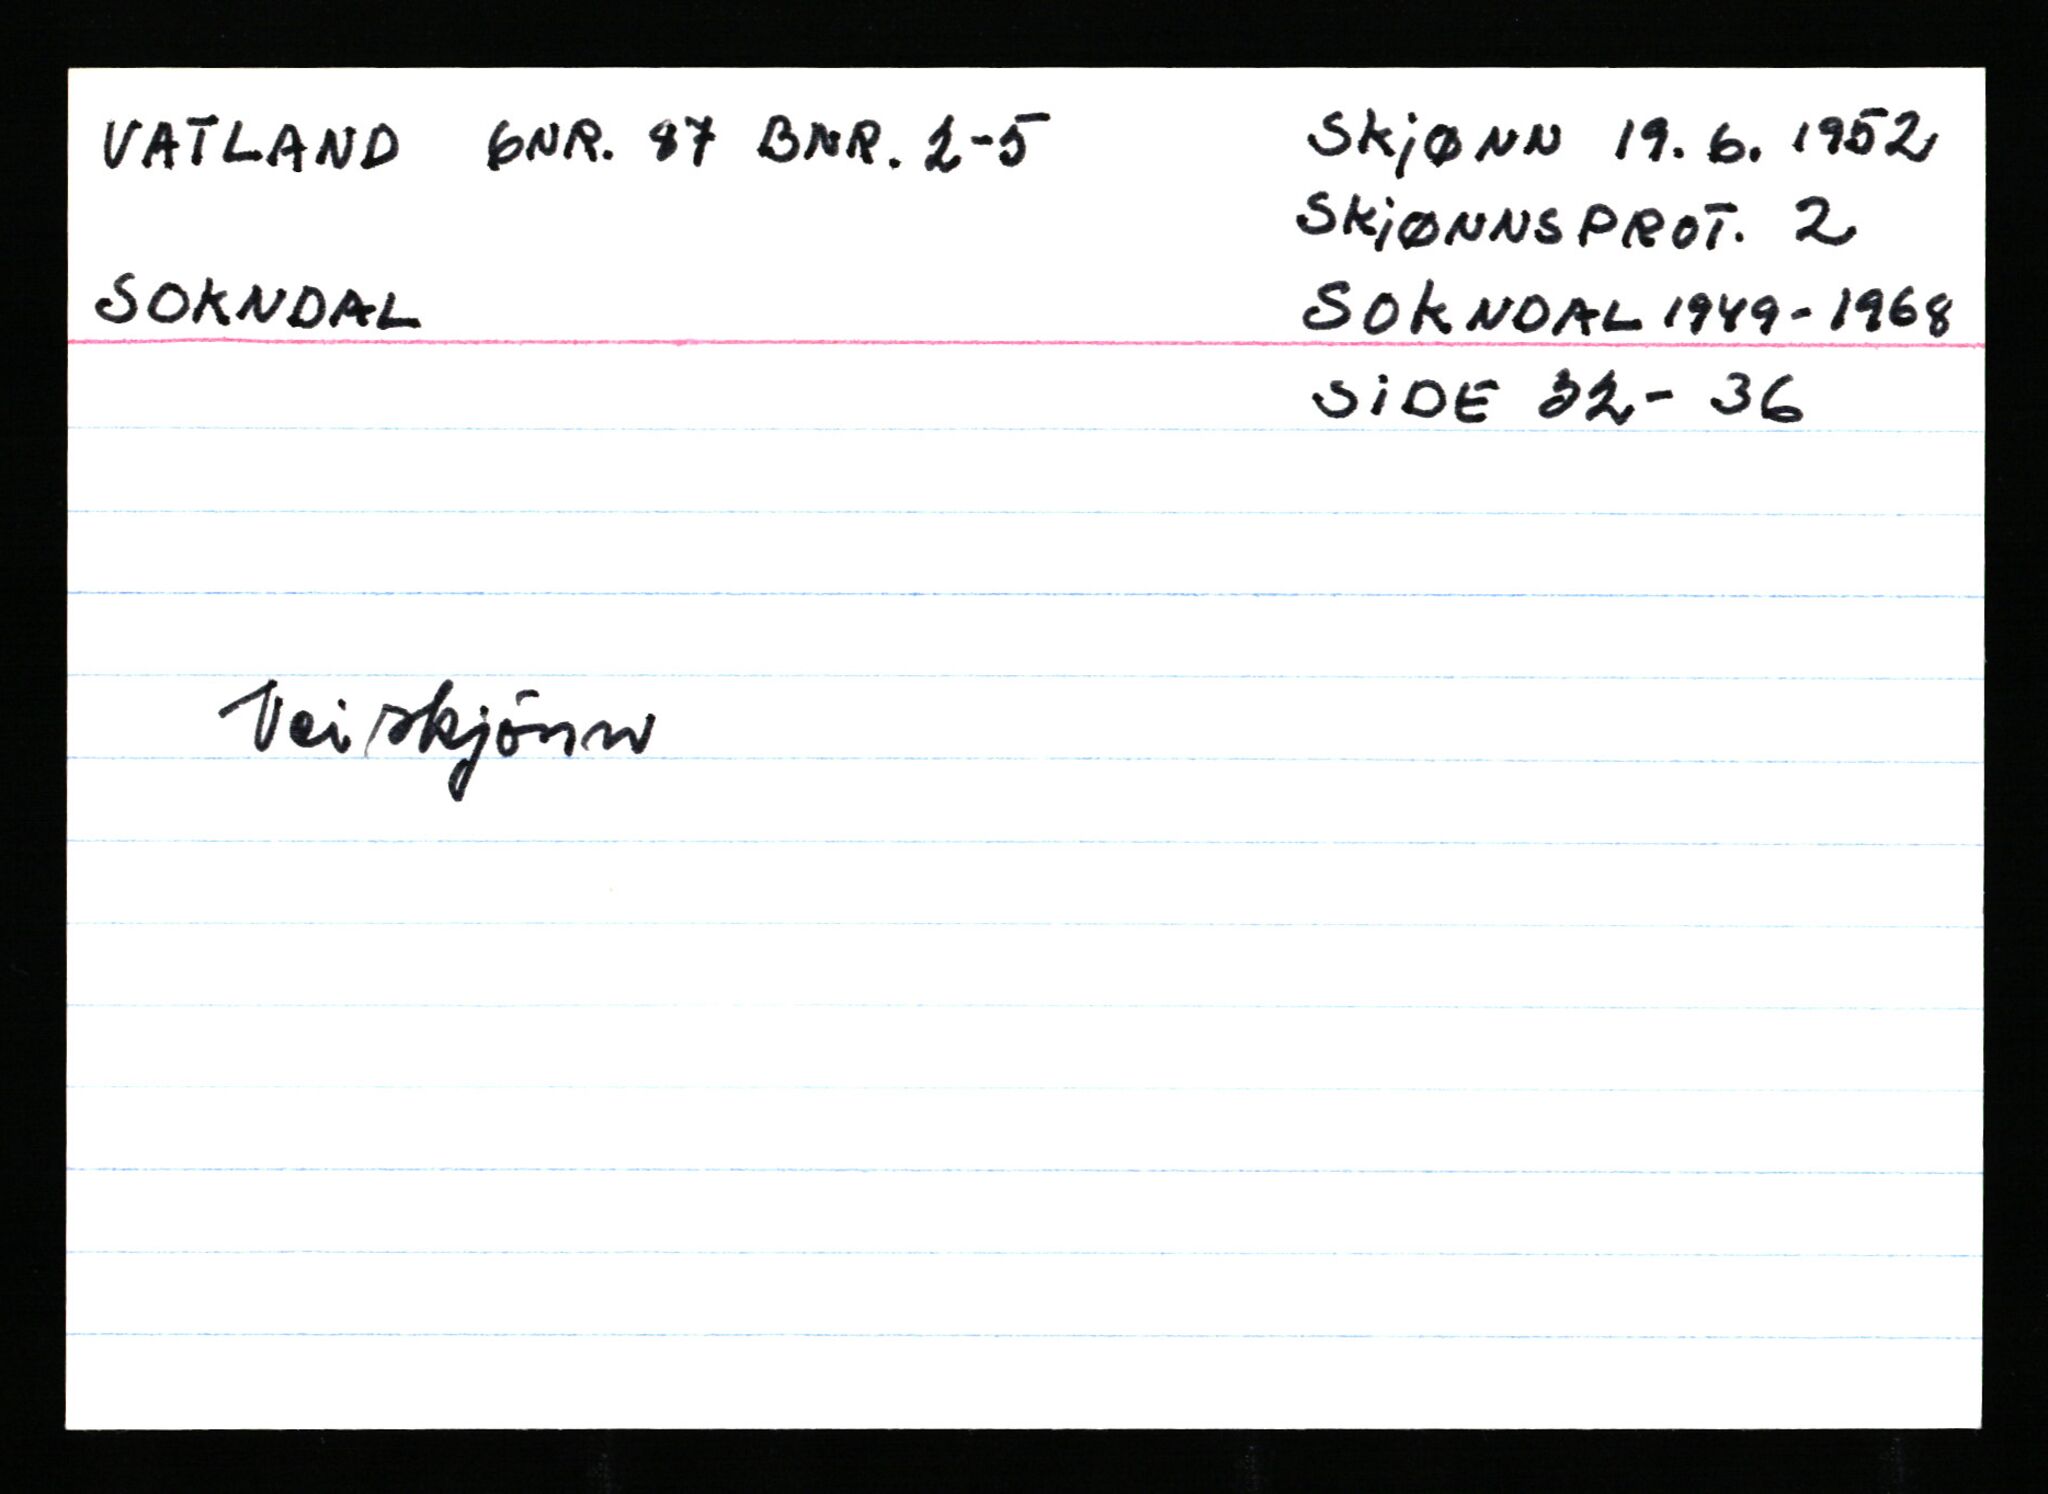 VATLAND GNR. 87 BNR. 2-5
SKJØNN 19.6.1952
SKJØNNSPROT. 2
SOKNDAL
SOKNDAL 1949-1968
SIDE 32-36
Veiskjönn